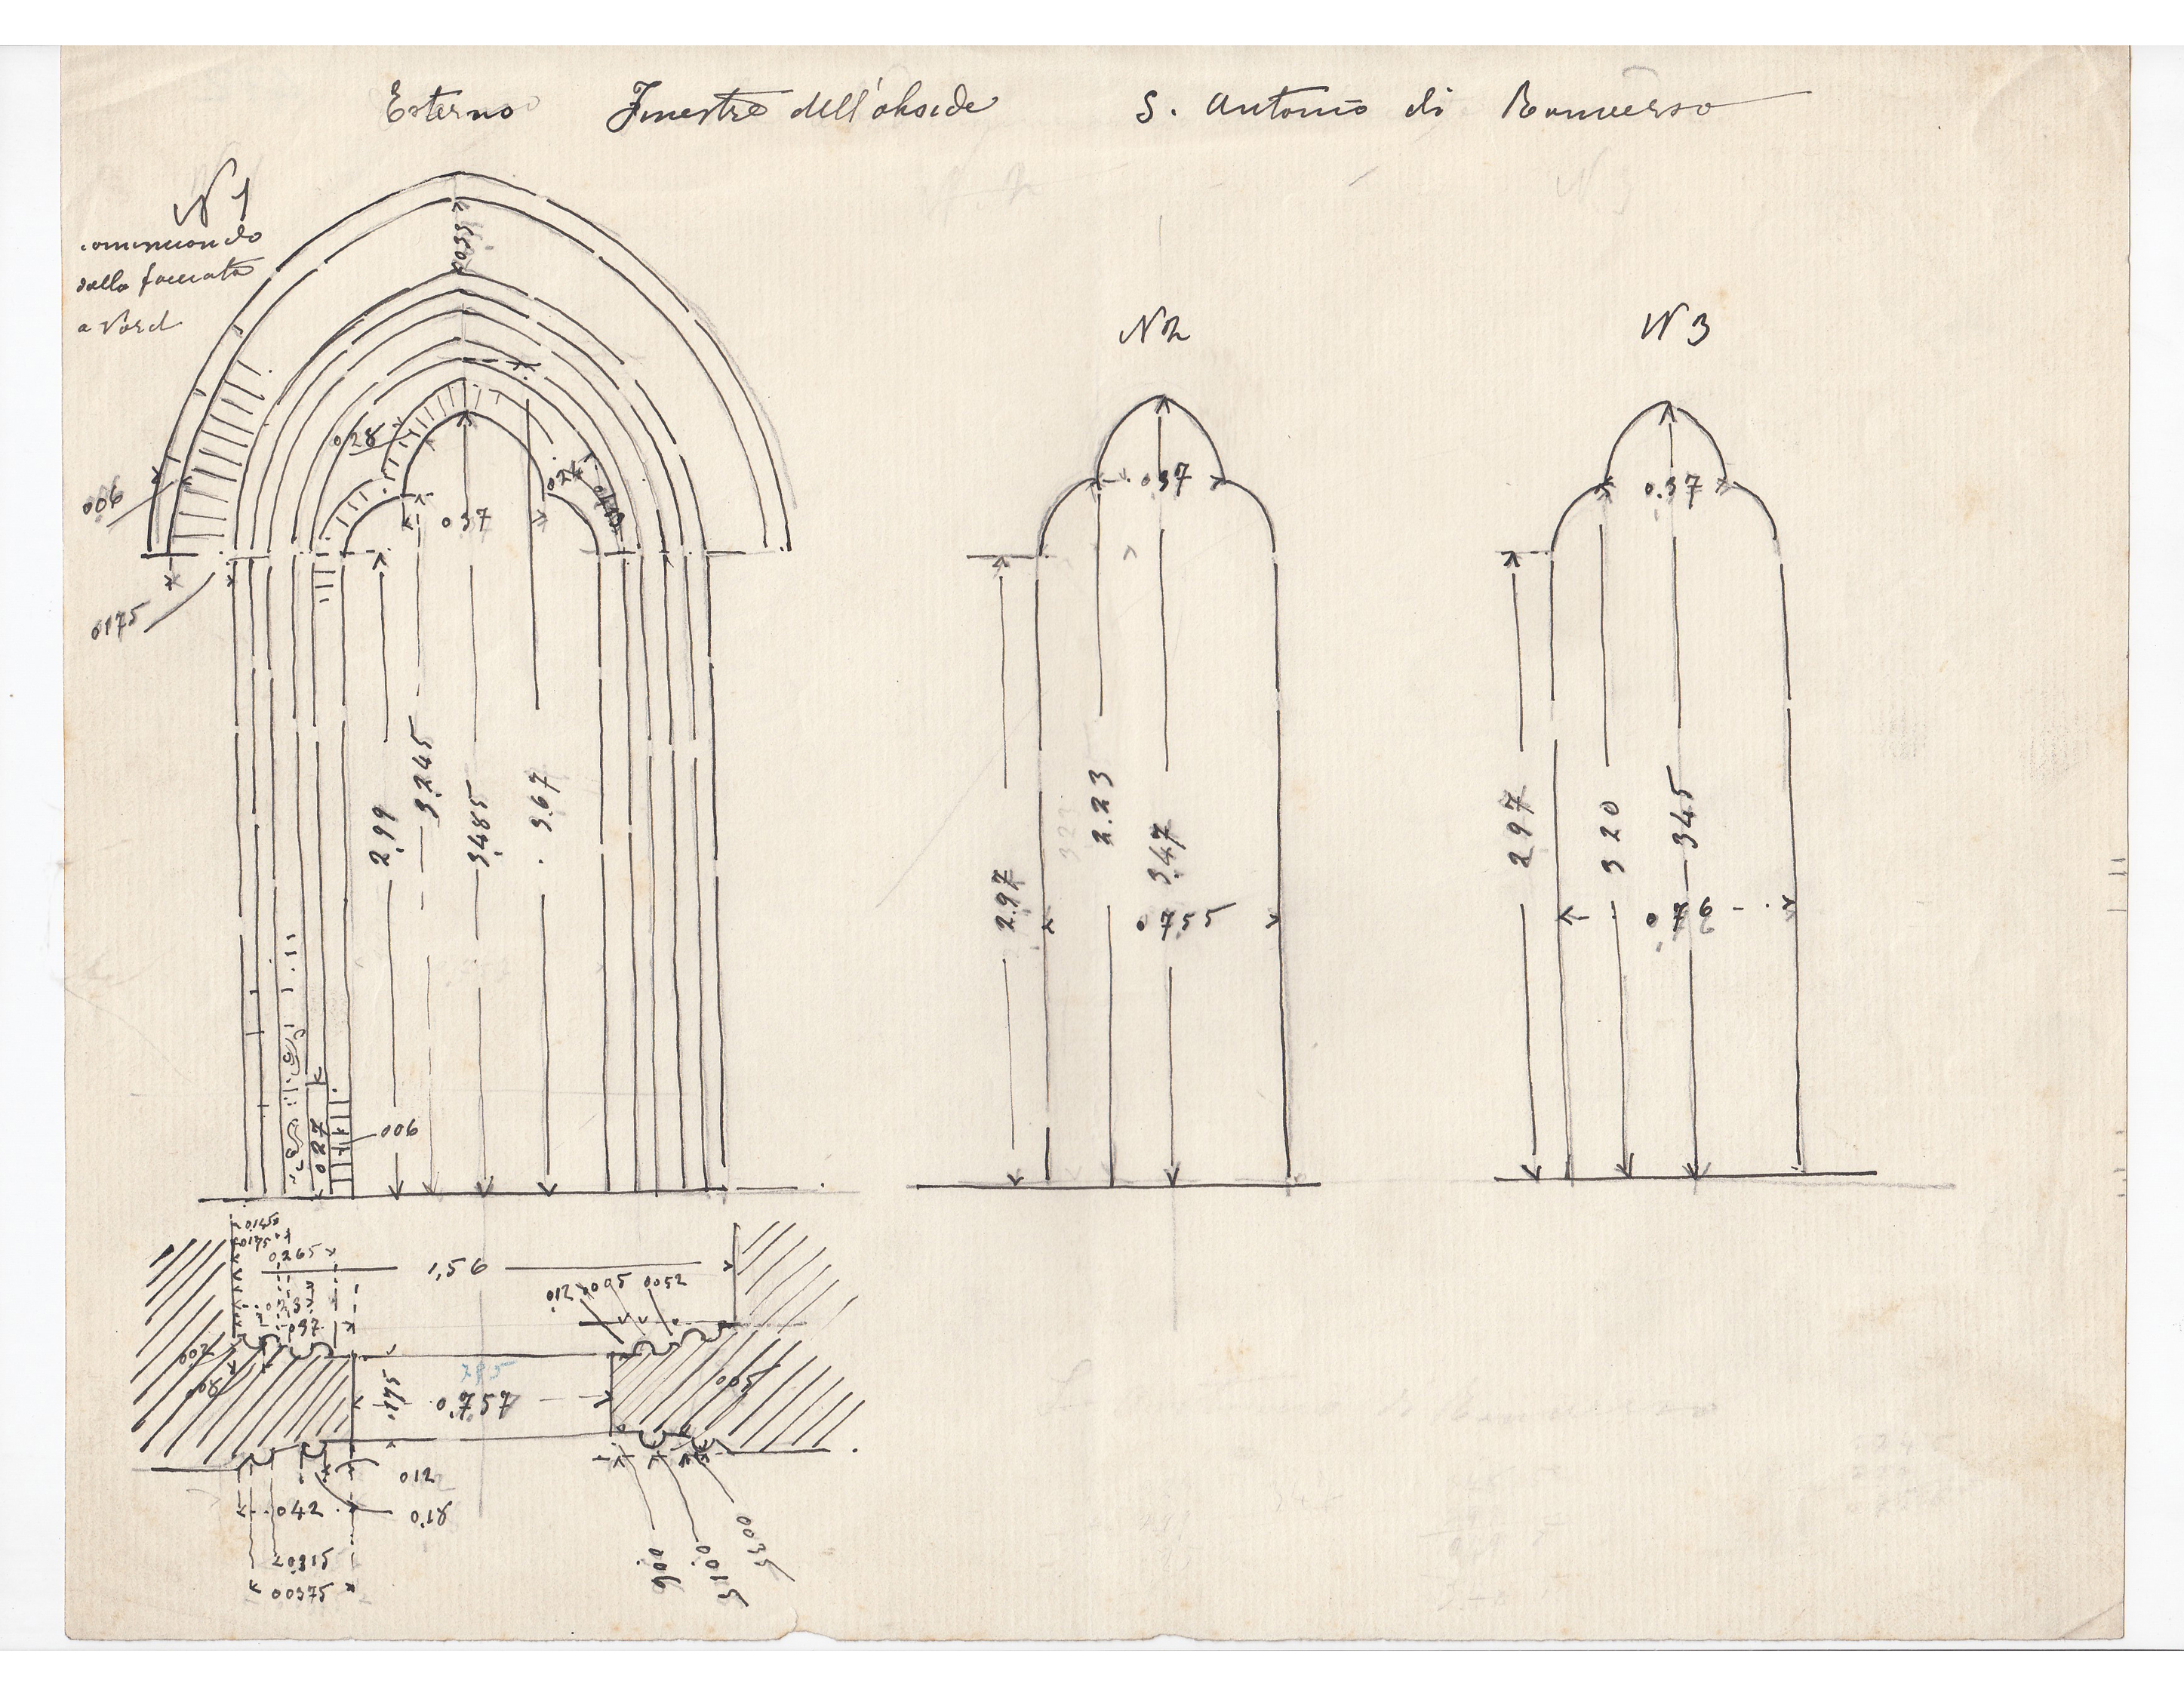 Esterno Finestre dell'abside S. Antonio di Ranverso
N 1
cominciando
dalla facciata
a Nord
N 2
N 3
0035
028
024
037
006
0175
2.99
3.245
3.485
3.67
027
006
037
2.97
323
2.23
3.47
0755
0.37
2 97
3 20
3 45
0,76
0,265
1,56
010
005
0052
002
008
005
285
0.757
175
012
018
042
0315
00375
006
0.015
0035